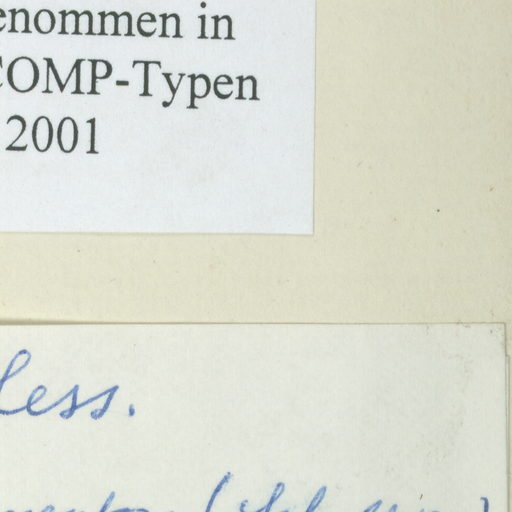 enommen in
COMP-Typen
2001
Less.